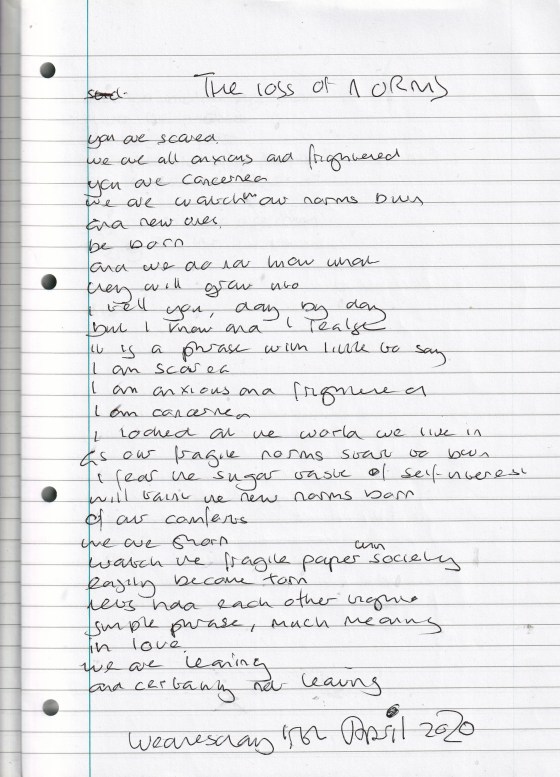 The loss of NORMS
you are scared
we are all anxious and frightened
you are concerned
we are watching our norms burn
and new ones
be born
and we do not know what
they will grow into
I tell you, day by day
but I know and I realise
it is a phrase with little to say
I am scared
I am anxious and frightened
I am concerned
I looked at the world we live in
As our fragile norms start to burn
I fear the sugar taste of self-interest
will taint the new norms born
of our comforts
we are shorn
watch the fragile paper society
easily become torn
lets hold each other
simple phrase, much meaning
in love.
we are leaning
and certainly not leaving
Wednesday April 2020